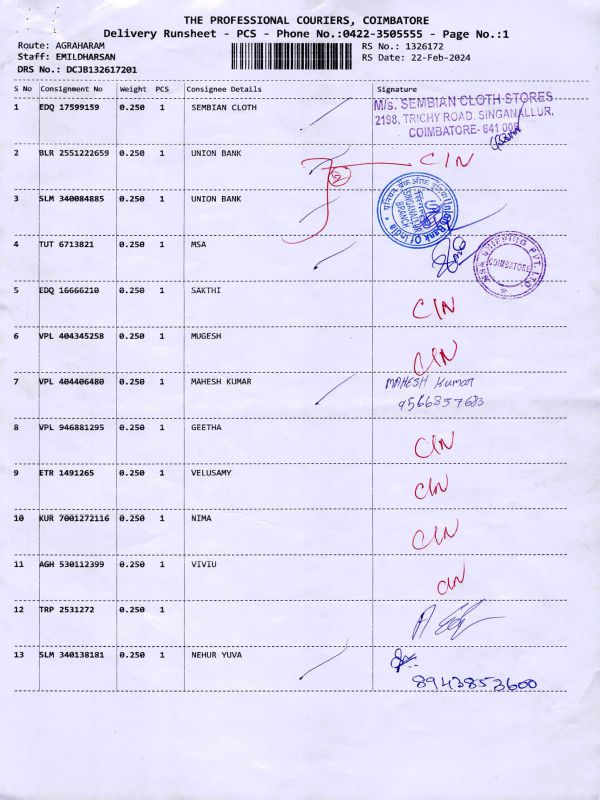 THE PROFESSIONAL COURIERS, COIMBATORE
Delivery Runsheet - PCS - Phone No.:0422-3505555 - Page No.:1
Route: AGRAHARAM
RS No.: 1326172
Staff: EMILDHARSAN
RS Date: 22-Feb-2024
DRS No.: DCJB132617201
S No Consignment No Weight PCS Consignee Details Signature
1 EDQ 17599159 0.250 1 SEMBIAN CLOTH
M/s. SEMBIAN CLOTH STORES
2198, TRICHY ROAD, SINGANALLUR,
COIMBATORE- 641 005
2 BLR 2551222659 0.250 1 UNION BANK CIN
3 SLM 340084885 0.250 1 UNION BANK
यूनियन बैंक ऑफ इंडिया Union Bank Of India
SINGANALLUR
BRANCH
4 TUT 6713821 0.250 1 MSA
MSA SHIPPING PVT. LTD.
COIMBATORE
5 EDQ 16666210 0.250 1 SAKTHI CIN
6 VPL 404345258 0.250 1 MUGESH CIN
7 VPL 404406480 0.250 1 MAHESH KUMAR MAHESH Kumar
9566857683
8 VPL 946881295 0.250 1 GEETHA CIN
9 ETR 1491265 0.250 1 VELUSAMY CIN
10 KUR 7001272116 0.250 1 NIMA CIN
11 AGH 530112399 0.250 1 VIVIU CIN
12 TRP 2531272 0.250 1
13 SLM 340138181 0.250 1 NEHUR YUVA
8943853600